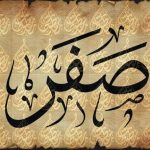 صَفَر